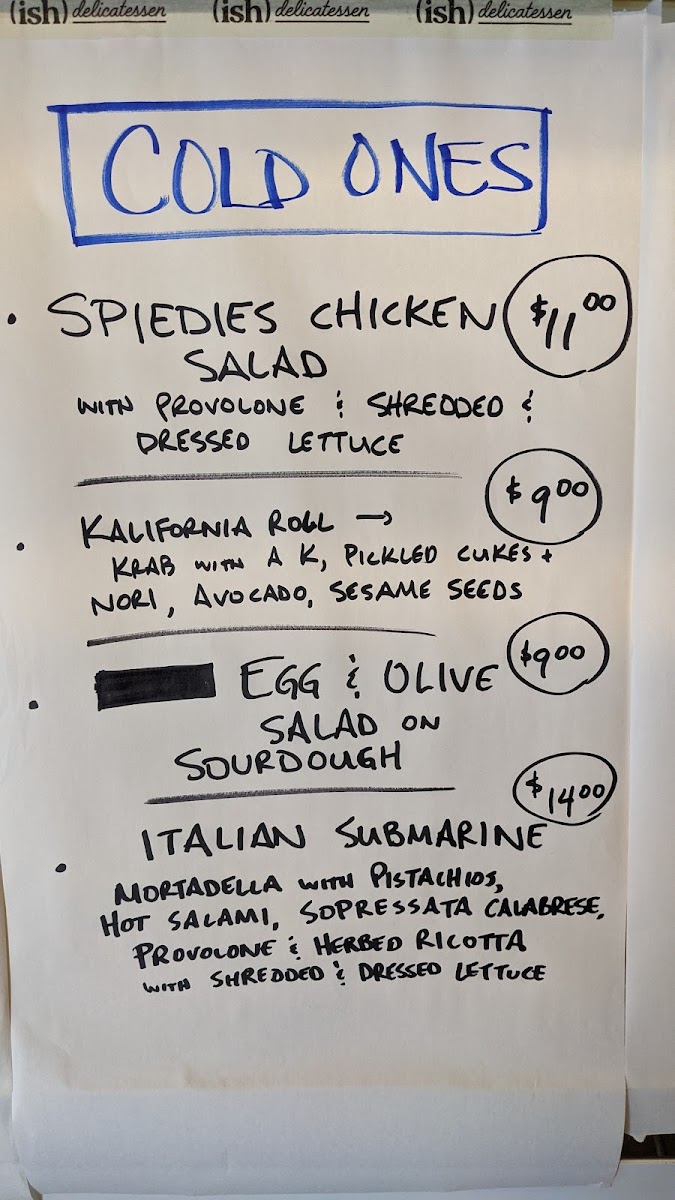 (ish) delicatessen (ish) delicatessen (ish) delicatessen
COLD ONES
• SPIEDIES CHICKEN $11 00
SALAD
WITH PROVOLONE & SHREDDED &
DRESSED LETTUCE
$9 00
• KALIFORNIA ROLL →
KRAB WITH A K, PICKLED CUKES +
NORI, AVOCADO, SESAME SEEDS
• EGG & OLIVE $9 00
SALAD ON
SOURDOUGH
$14 00
• ITALIAN SUBMARINE
MORTADELLA WITH PISTACHIOS,
HOT SALAMI, SOPRESSATA CALABRESE,
PROVOLONE & HERBED RICOTTA
WITH SHREDDED & DRESSED LETTUCE